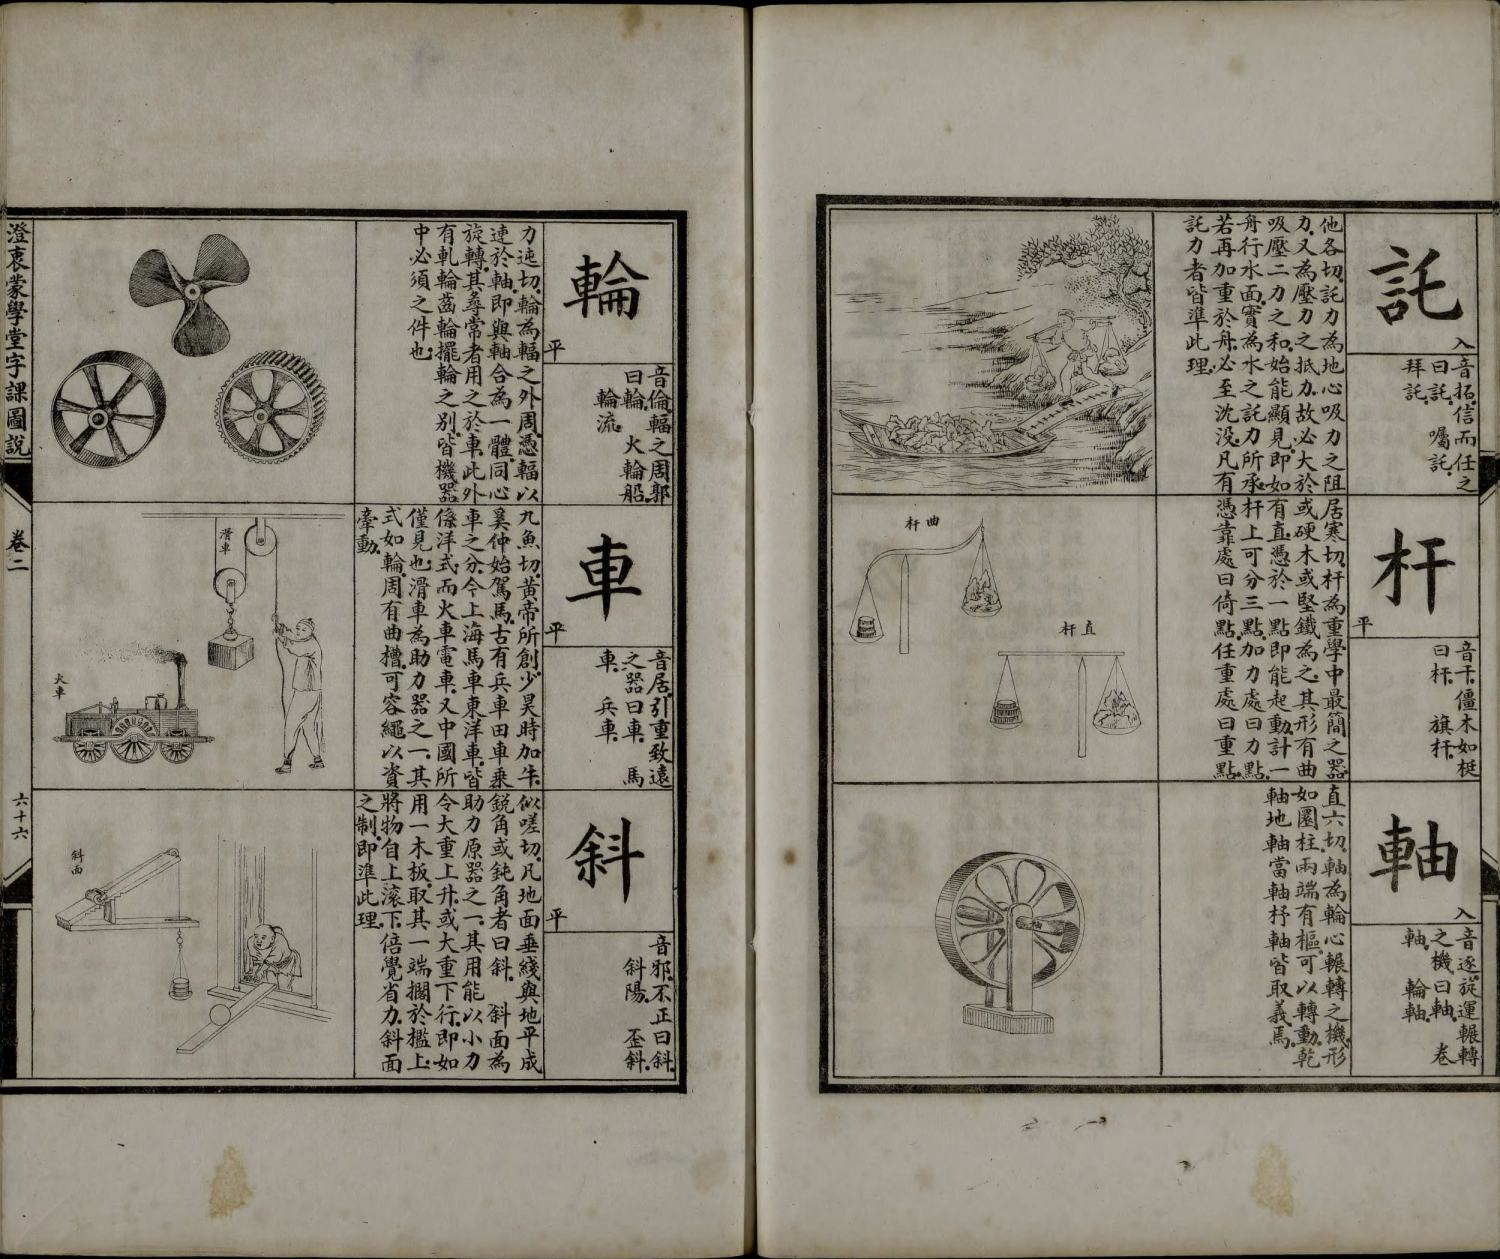 託
入
音拓.信而任之
曰託. 囑託.
拜託.
他各切.託力為地心吸力之阻
力.又為壓力之抵力.故必大於
吸壓二力之和.始能顯見.即如
舟行水面.實為水之託力所承.
若再加重於舟.必至沈没.凡有
託力者.皆準此理.
杆
平
音干.僵木如梃
曰杆. 旗杆.
居寒切.杆為重學中最簡之器.
或硬木或堅鐵為之.其形有曲
有直.憑於一點.即能起動.計一
杆上可分三點.加力處曰力點.
憑靠處曰倚點.任重處曰重點.
曲杆
直杆
軸
入
音逐.旋運輾轉
之機曰軸. 卷
軸. 輪軸.
直六切.軸為輪心輾轉之機.形
如圜柱.兩端有樞.可以轉動.乾
軸地軸當軸杼軸皆取義焉.
輪
平
音倫.輻之周郭
曰輪. 火輪船.
輪流.
力迍切.輪為輻之外周.憑輻以
連於軸.即與軸合為一體.同心
旋轉.其尋常者用之於車.此外
有軋輪齒輪擺輪之別.皆機器
中必須之件也.
車
平
音居.引重致遠
之器曰車. 馬
車. 兵車.
九魚切.黃帝所創.少昊時加牛.
奚仲始駕馬.古有兵車田車乘
車之分.今上海馬車東洋車.皆
係洋式.而火車電車.又中國所
僅見也.滑車為助力器之一.其
式如輪.周有曲槽.可容繩以資
牽動.
滑車
火車
斜
平
音邪.不正曰斜.
斜陽. 歪斜.
似嗟切.凡地面垂綫與地平成
銳角或鈍角者曰斜. 斜面為
助力原器之一.其用能以小力
令大重上升.或大重下行.即如
用一木板.取其一端擱於檻上.
將物自上滾下.倍覺省力.斜面
之制.即準此理.
斜面
澄衷蒙學堂字課圖說
卷二
六十六